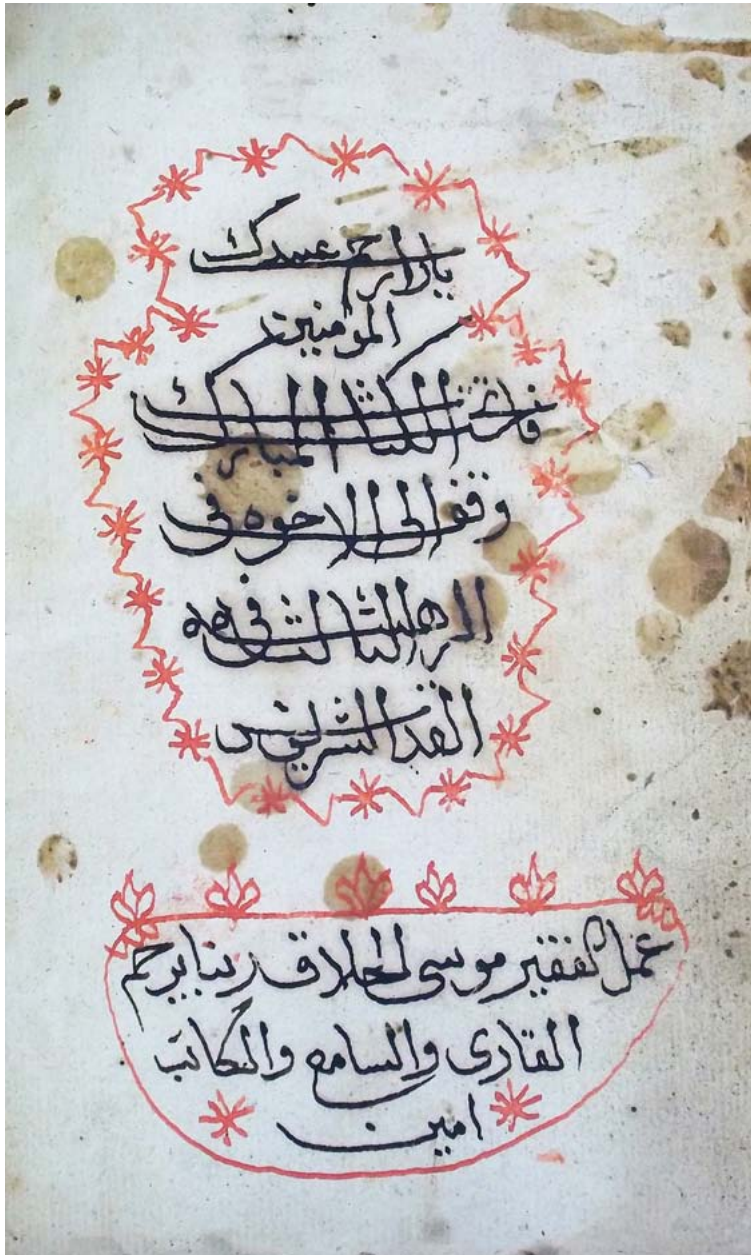 ارحم عبيدك
المومنين
الكتاب المبارك
وقف الى الاخوه فى
الثالث فى
القدس الشريف
عمل الفقير موسى الحلاق ربنا يرحم
القارى والسامع والكاتب
امين